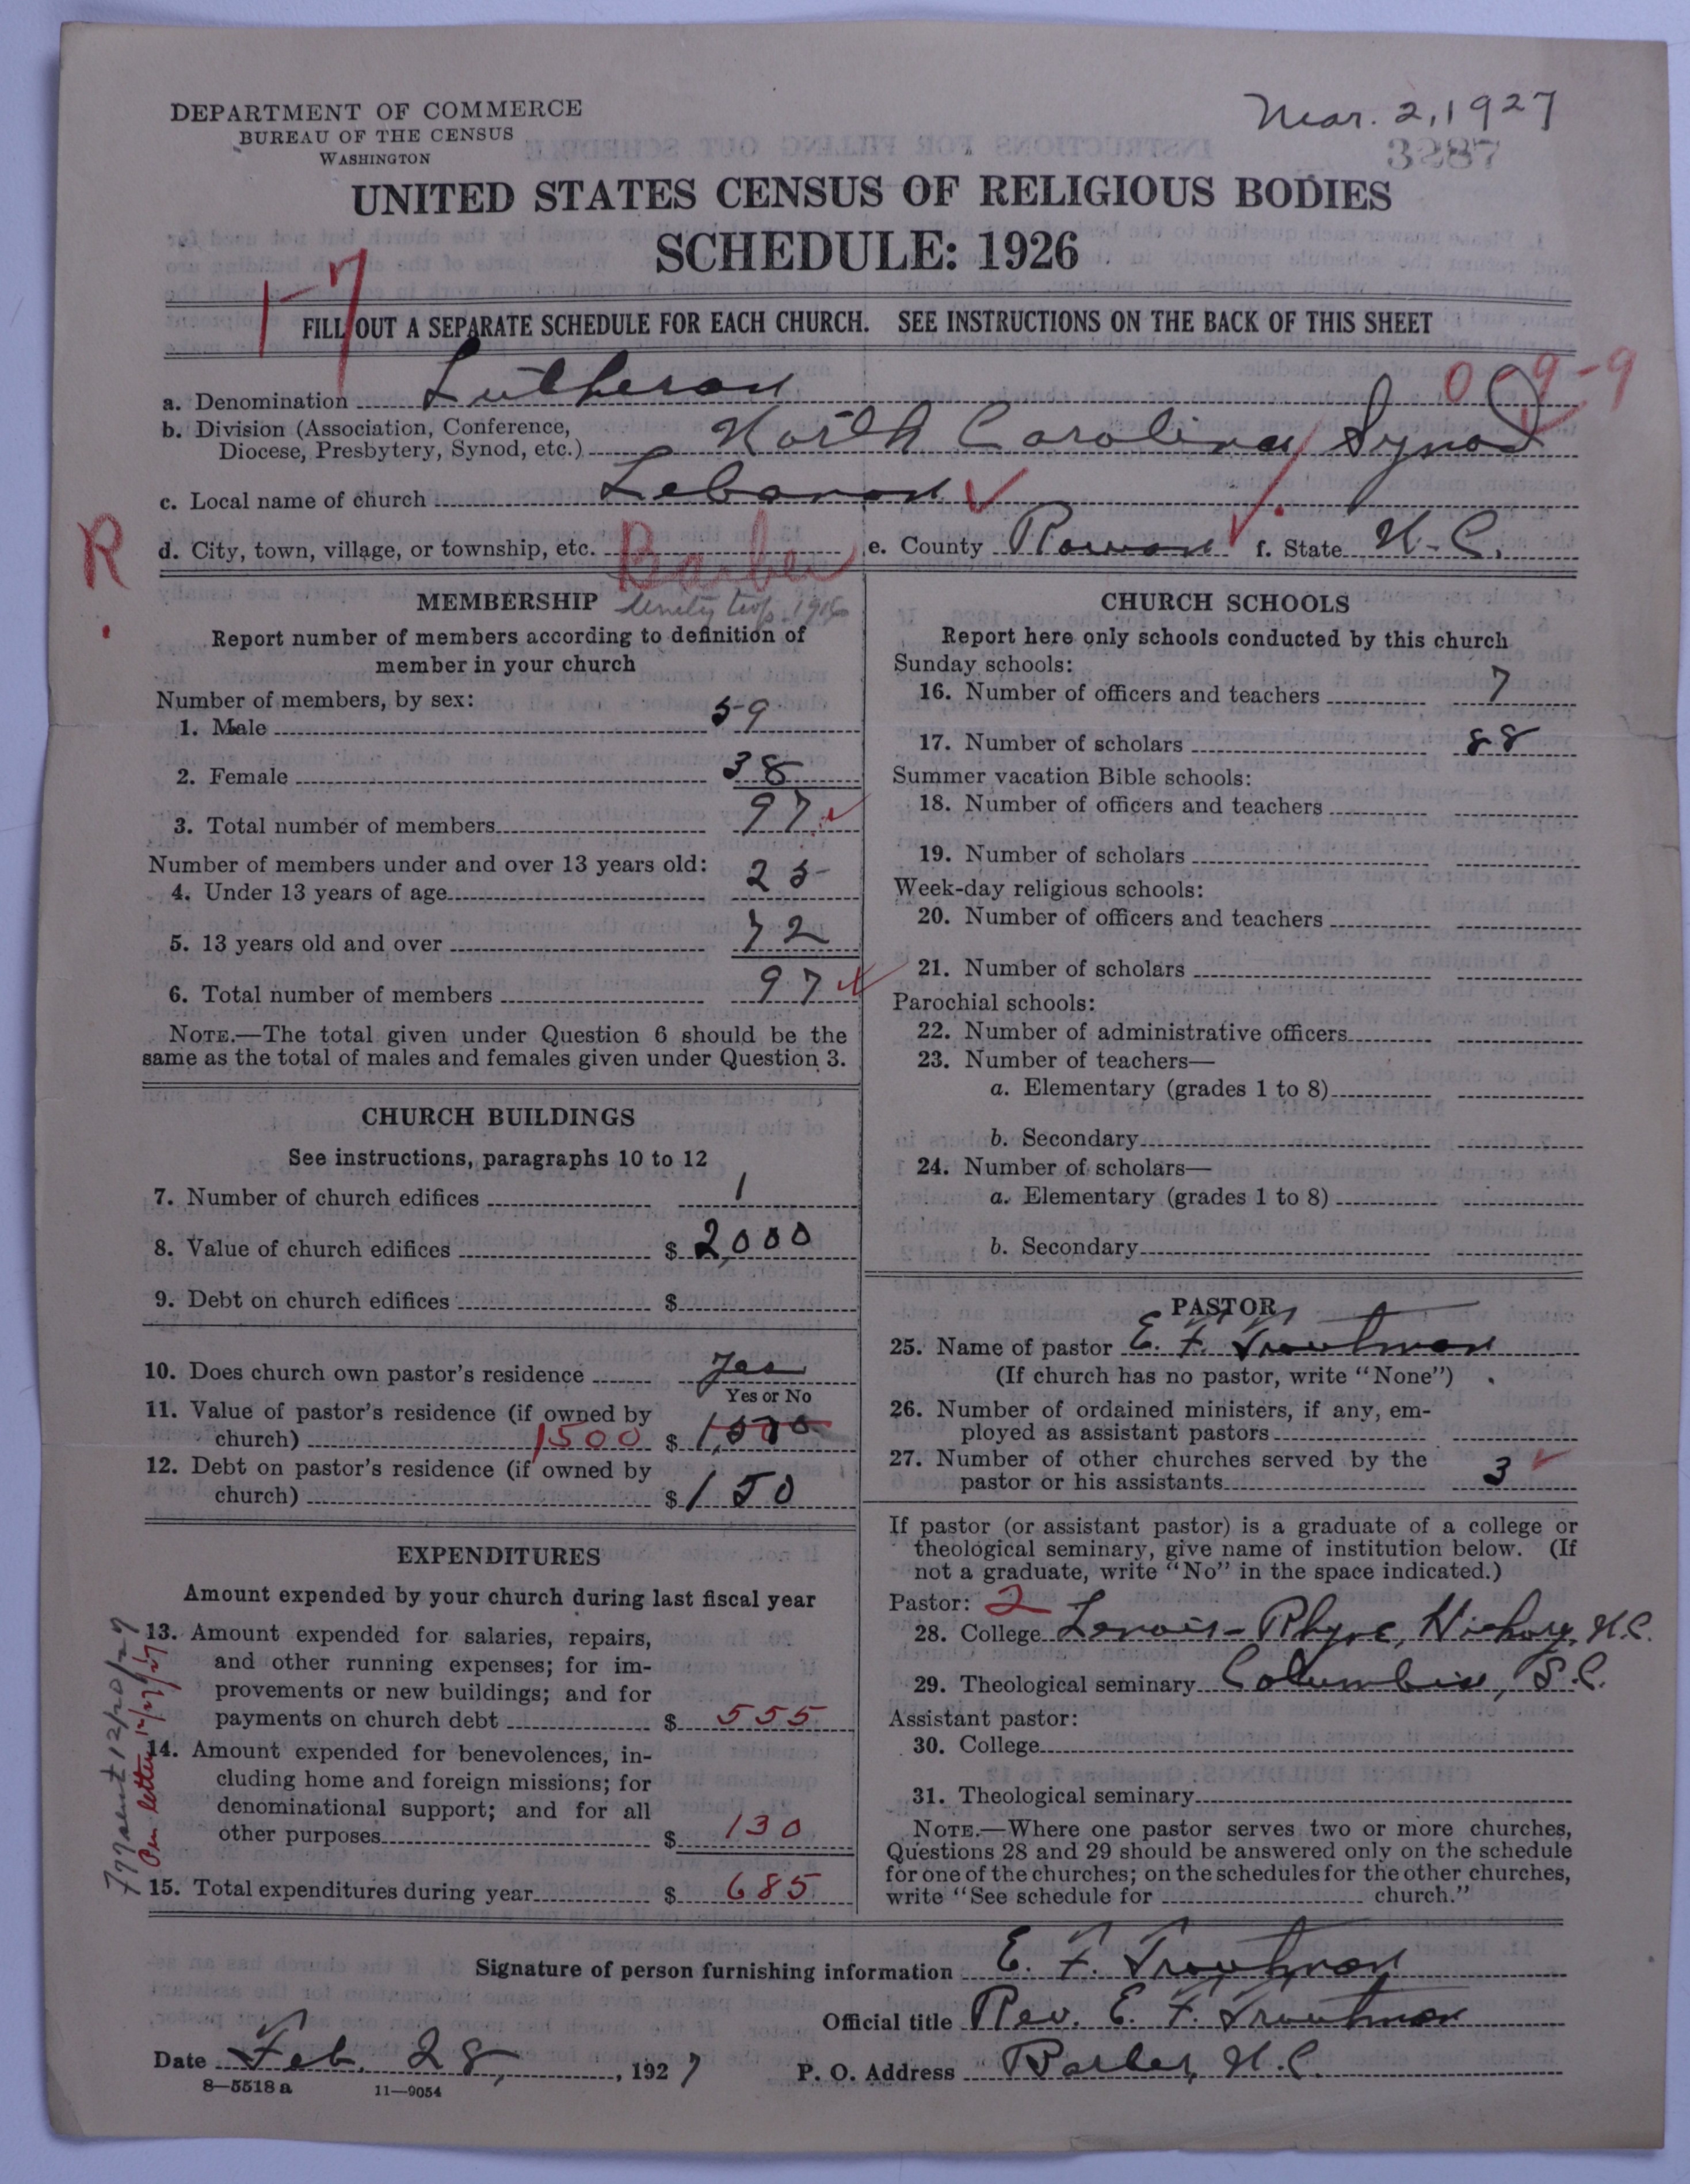 DEPARTMENT OF COMMERCE
BUREAU OF THE CENSUS
WASHINGTON
Mar. 2, 1927
3287
UNITED STATES CENSUS OF RELIGIOUS BODIES
SCHEDULE: 1926
17
FILL OUT A SEPARATE SCHEDULE FOR EACH CHURCH. SEE INSTRUCTIONS ON THE BACK OF THIS SHEET
0-9-9
a. Denomination Lutheran
b. Division (Association, Conference, Diocese, Presbytery, Synod, etc.) North Carolina Synod
c. Local name of church Lebanon
R
d. City, town, village, or township, etc. Barber e. County Rowan f. State N. C.
MEMBERSHIP
Report number of members according to definition of
member in your church
Number of members, by sex:
1. Male 59
2. Female 38
3. Total number of members 97
Number of members under and over 13 years old:
4. Under 13 years of age 25
5. 13 years old and over 72
6. Total number of members 97
NOTE.—The total given under Question 6 should be the
same as the total of males and females given under Question 3.
CHURCH BUILDINGS
See instructions, paragraphs 10 to 12
7. Number of church edifices 1
8. Value of church edifices $ 2,000
9. Debt on church edifices $
10. Does church own pastor's residence Yes
Yes or No
11. Value of pastor's residence (if owned by
church) 1500 $ 1,500
12. Debt on pastor's residence (if owned by
church) $ 150
EXPENDITURES
Amount expended by your church during last fiscal year
13. Amount expended for salaries, repairs,
and other running expenses; for im-
provements or new buildings; and for
payments on church debt $ 555
14. Amount expended for benevolences, in-
cluding home and foreign missions; for
denominational support; and for all
other purposes $ 130
15. Total expenditures during year $ 685
sent 12/20/27
Per letter 12/27/27
CHURCH SCHOOLS
Report here only schools conducted by this church
Sunday schools:
16. Number of officers and teachers 7
17. Number of scholars 88
Summer vacation Bible schools:
18. Number of officers and teachers
19. Number of scholars
Week-day religious schools:
20. Number of officers and teachers
21. Number of scholars
Parochial schools:
22. Number of administrative officers
23. Number of teachers—
a. Elementary (grades 1 to 8)
b. Secondary
24. Number of scholars—
a. Elementary (grades 1 to 8)
b. Secondary
PASTOR
25. Name of pastor E. F. Troutman
(If church has no pastor, write "None")
26. Number of ordained ministers, if any, em-
ployed as assistant pastors
27. Number of other churches served by the
pastor or his assistants 3
If pastor (or assistant pastor) is a graduate of a college or
theological seminary, give name of institution below. (If
not a graduate, write "No" in the space indicated.)
Pastor: 2
28. College Lenoir-Rhyne, Hickory, N.C.
29. Theological seminary Columbia, S.C.
Assistant pastor:
30. College
31. Theological seminary
NOTE.—Where one pastor serves two or more churches,
Questions 28 and 29 should be answered only on the schedule
for one of the churches; on the schedules for the other churches,
write "See schedule for church."
Signature of person furnishing information E. F. Troutman
Official title Rev. E. F. Troutman
Date Feb. 28, 1927 P. O. Address Barber, N.C.
8—5518 a 11—9054